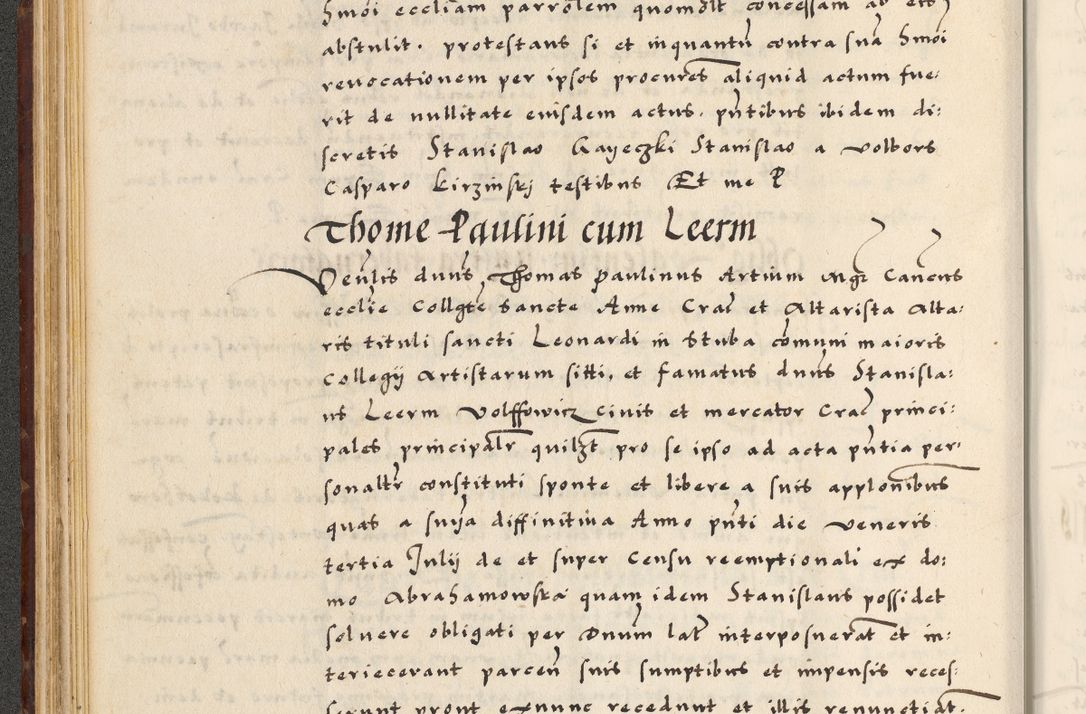 hmoi eccliam parrolem quomolt concessam ab eis
abstulit. protestans si et inquantũ contra suã hmoi
revocationem per ipsos procures aliquid actum fue:
rit de nullitate eiusdem actus. pñtibus ibidem di:
scretis Stanislao Gayeczki Stanislao a volbors
Casparo Kirzinskj testibus Et me P
Thome Paulini cum Leerm
Veñlis dũns Thomas paulinus Artium mgr Cancus
ecclie Collgte sancte Anne Crac et Altarista Alta:
ris tituli sancti Leonardi in stuba comuni maioris
Collegij Artistarum siti, et famatus dũns Stanisla:
us Leerm Volffowicz civis et mercator Crac princi:
pales principalr quilzt pro se ipso ad acta pñtia per:
sonaltr constituti sponte et libere a suis applonibus
quas a sniã diffinitiva Anno pñti die veneris
tertia Julij de et super censu reemptionali ex do:
mo Abrahamowska quam idem Stanislaus possidet
solvere obligati per Dnum lat interposuerat et in:
teriecerant parceñ suis sumptibus et impensis reces:
serunt prout exnunc recedunt et illis renunctiat.